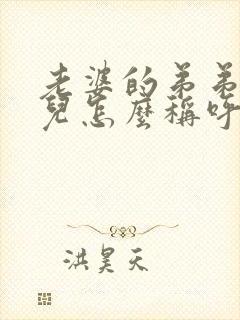 老婆的弟弟
兒怎麼稱呼
洪昊天